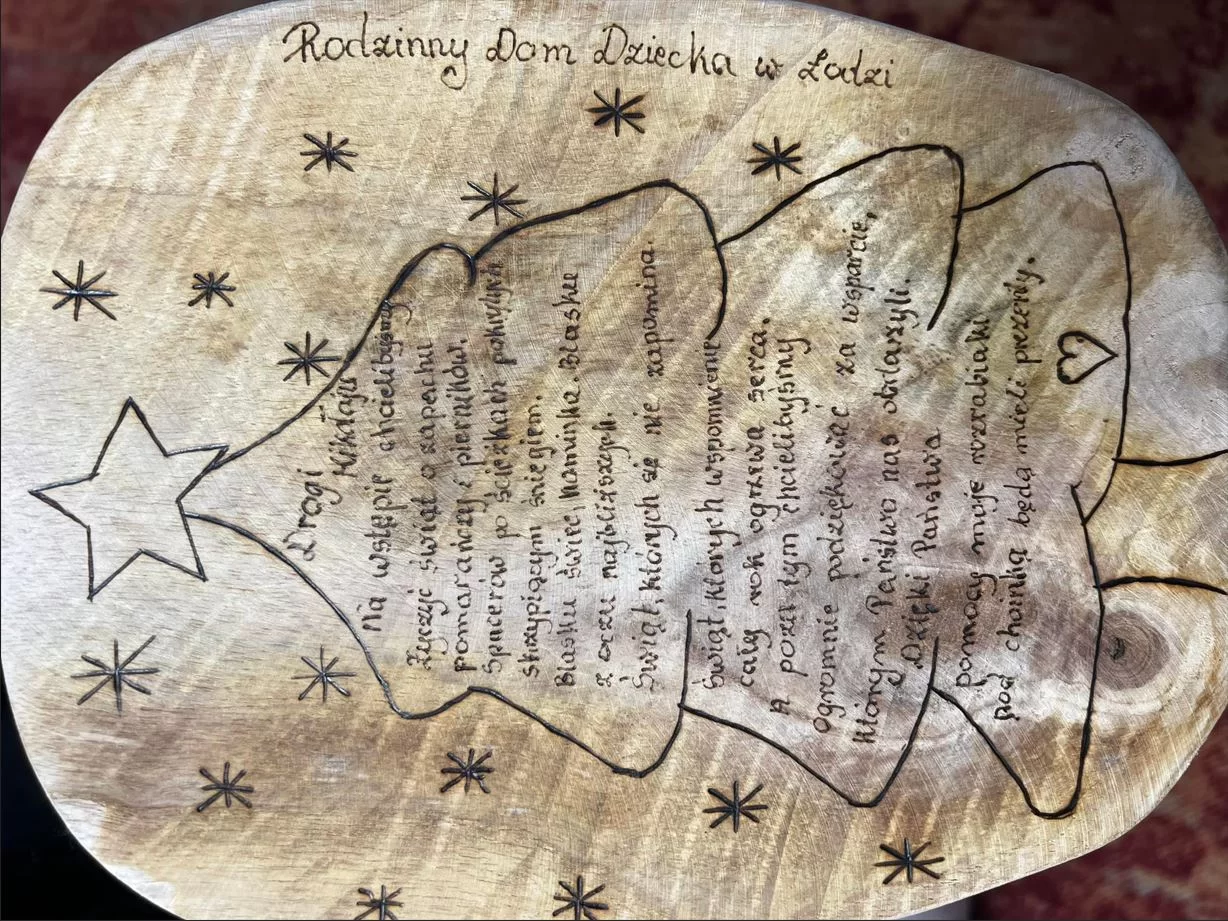 Rodzinny Dom Dziecka w Łodzi
Drogi
Mikołaju
Na wstępie chcielibyśmy
życzyć świąt o zapachu
pomarańczy i pierników.
Spacerów po ścieżkach pokrytych
skrzypiącym śniegiem.
Blasku świec, kominka. Blasku
z oczu najbliższych.
Świąt, których się nie zapomina.
Świąt, których wspomnienie
cały rok ogrzewa serca.
A poza tym chcielibyśmy
Ogromnie podziękować za wsparcie,
którym Państwo nas obdarzyli.
Dzięki Państwa
pomocy moje rozrabiaki
pod choinką będą mieli prezenty.